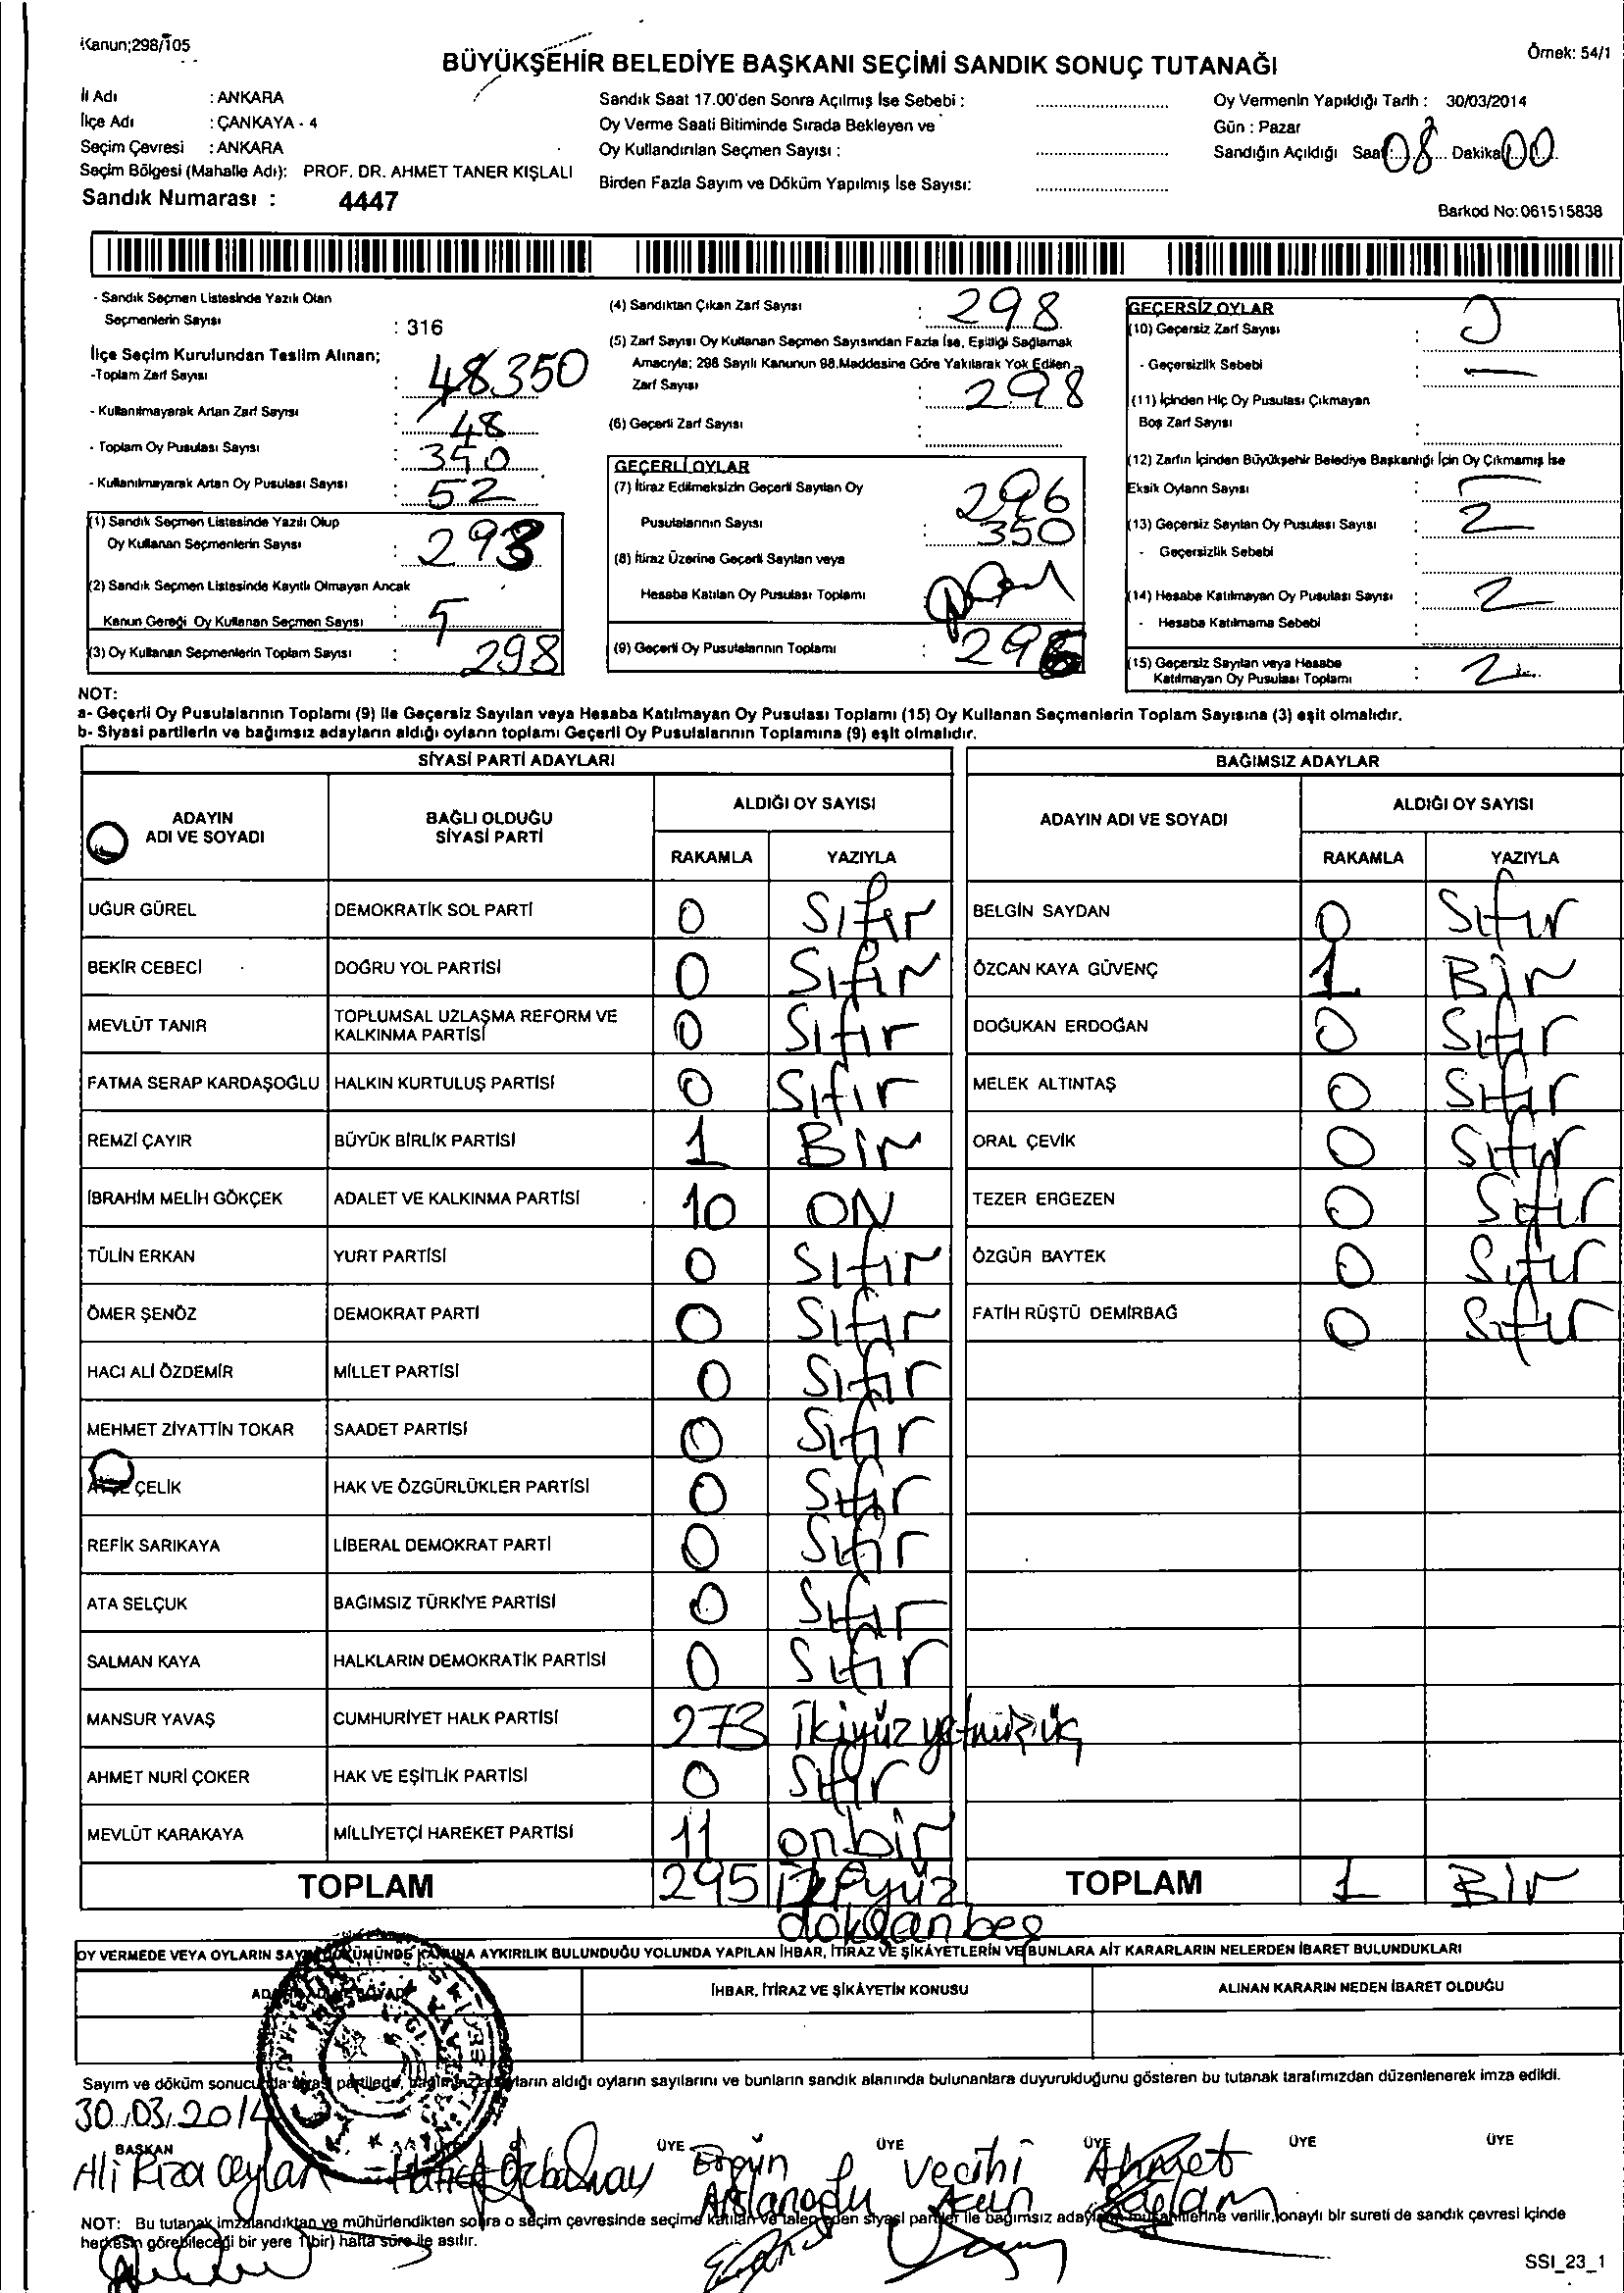 Kanun;298/105
BÜYÜKŞEHİR BELEDİYE BAŞKANI SEÇİMİ SANDIK SONUÇ TUTANAĞI
Örnek: 54/1
İl Adı : ANKARA
İlçe Adı : ÇANKAYA - 4
Seçim Çevresi : ANKARA
Seçim Bölgesi (Mahalle Adı): PROF. DR. AHMET TANER KIŞLALI
Sandık Numarası : 4447
Sandık Saat 17.00'den Sonra Açılmış İse Sebebi :
Oy Verme Saati Bitiminde Sırada Bekleyen ve
Oy Kullandırılan Seçmen Sayısı :
Birden Fazla Sayım ve Döküm Yapılmış İse Sayısı:
Oy Vermenin Yapıldığı Tarih : 30/03/2014
Gün : Pazar
Sandığın Açıldığı Saat: 08 Dakika 00
Barkod No:061515838
- Sandık Seçmen Listesinde Yazılı Olan
Seçmenlerin Sayısı : 316
İlçe Seçim Kurulundan Teslim Alınan;
-Toplam Zarf Sayısı : 48350
- Kullanılmayarak Artan Zarf Sayısı : 48
- Toplam Oy Pusulası Sayısı : 350
- Kullanılmayarak Artan Oy Pusulası Sayısı : 52
(1) Sandık Seçmen Listesinde Yazılı Olup
Oy Kullanan Seçmenlerin Sayısı : 293
(2) Sandık Seçmen Listesinde Kayıtlı Olmayan Ancak
Kanun Gereği Oy Kullanan Seçmen Sayısı : 5
(3) Oy Kullanan Seçmenlerin Toplam Sayısı : 298
(4) Sandıktan Çıkan Zarf Sayısı : 298
(5) Zarf Sayısı Oy Kullanan Seçmen Sayısından Fazla İse, Eşitliği Sağlamak
Amacıyla; 298 Sayılı Kanunun 98.Maddesine Göre Yakılarak Yok Edilen
Zarf Sayısı : 298
(6) Geçerli Zarf Sayısı :
GEÇERLİ OYLAR
(7) İtiraz Edilmeksizin Geçerli Sayılan Oy
Pusulalarının Sayısı : 296
350
(8) İtiraz Üzerine Geçerli Sayılan veya
Hesaba Katılan Oy Pusulası Toplamı
(9) Geçerli Oy Pusulalarının Toplamı : 296
GEÇERSİZ OYLAR
(10) Geçersiz Zarf Sayısı : 0
- Geçersizlik Sebebi : —
(11) İçinden Hiç Oy Pusulası Çıkmayan
Boş Zarf Sayısı :
(12) Zarfın İçinden Büyükşehir Belediye Başkanlığı İçin Oy Çıkmamış İse
Eksik Oyların Sayısı : —
(13) Geçersiz Sayılan Oy Pusulası Sayısı : 2
- Geçersizlik Sebebi :
(14) Hesaba Katılmayan Oy Pusulası Sayısı : 2
- Hesaba Katılmama Sebebi :
(15) Geçersiz Sayılan veya Hesaba
Katılmayan Oy Pusulası Toplamı : 2
NOT:
a- Geçerli Oy Pusulalarının Toplamı (9) ile Geçersiz Sayılan veya Hesaba Katılmayan Oy Pusulası Toplamı (15) Oy Kullanan Seçmenlerin Toplam Sayısına (3) eşit olmalıdır.
b- Siyasi partilerin ve bağımsız adayların aldığı oyların toplamı Geçerli Oy Pusulalarının Toplamına (9) eşit olmalıdır.
SİYASİ PARTİ ADAYLARI
ADAYIN ADI VE SOYADI BAĞLI OLDUĞU SİYASİ PARTİ ALDIĞI OY SAYISI
RAKAMLA YAZIYLA
UĞUR GÜREL DEMOKRATİK SOL PARTİ 0 Sıfır
BEKİR CEBECİ DOĞRU YOL PARTİSİ 0 Sıfır
MEVLÜT TANIR TOPLUMSAL UZLAŞMA REFORM VE KALKINMA PARTİSİ 0 Sıfır
FATMA SERAP KARDAŞOĞLU HALKIN KURTULUŞ PARTİSİ 0 Sıfır
REMZİ ÇAYIR BÜYÜK BİRLİK PARTİSİ 1 Bir
İBRAHİM MELİH GÖKÇEK ADALET VE KALKINMA PARTİSİ 10 ON
TÜLİN ERKAN YURT PARTİSİ 0 Sıfır
ÖMER ŞENÖZ DEMOKRAT PARTİ 0 Sıfır
HACI ALİ ÖZDEMİR MİLLET PARTİSİ 0 Sıfır
MEHMET ZİYATTİN TOKAR SAADET PARTİSİ 0 Sıfır
ÇELİK HAK VE ÖZGÜRLÜKLER PARTİSİ 0 Sıfır
REFİK SARIKAYA LİBERAL DEMOKRAT PARTİ 0 Sıfır
ATA SELÇUK BAĞIMSIZ TÜRKİYE PARTİSİ 0 Sıfır
SALMAN KAYA HALKLARIN DEMOKRATİK PARTİSİ 0 Sıfır
MANSUR YAVAŞ CUMHURİYET HALK PARTİSİ 273 İkiyüz yetmişüç
AHMET NURİ ÇOKER HAK VE EŞİTLİK PARTİSİ 0 Sıfır
MEVLÜT KARAKAYA MİLLİYETÇİ HAREKET PARTİSİ 11 onbir
TOPLAM 295 İkiyüz
doksanbeş
BAĞIMSIZ ADAYLAR
ADAYIN ADI VE SOYADI ALDIĞI OY SAYISI
RAKAMLA YAZIYLA
BELGİN SAYDAN 0 Sıfır
ÖZCAN KAYA GÜVENÇ 1 Bir
DOĞUKAN ERDOĞAN 0 Sıfır
MELEK ALTINTAŞ 0 Sıfır
ORAL ÇEVİK 0 Sıfır
TEZER ERGEZEN 0 Sıfır
ÖZGÜR BAYTEK 0 Sıfır
FATİH RÜŞTÜ DEMİRBAĞ 0 Sıfır
TOPLAM 1 Bir
OY VERMEDE VEYA OYLARIN AYKIRILIK BULUNDUĞU YOLUNDA YAPILAN İHBAR, İTİRAZ VE ŞİKÂYETLERİN VE BUNLARA AİT KARARLARIN NELERDEN İBARET BULUNDUKLARI
İHBAR, İTİRAZ VE ŞİKÂYETİN KONUSU ALINAN KARARIN NEDEN İBARET OLDUĞU
Sayım ve döküm aldığı oyların sayılarını ve bunların sandık alanında bulunanlara duyurulduğunu gösteren bu tutanak tarafımızdan düzenlenerek imza edildi.
30.03.2014
BAŞKAN ÜYE ÜYE ÜYE ÜYE ÜYE
Ali Rıza Ceylan Ergün Arslanoğlu Vecihi Ahmet Sağlam
NOT: Bu tutanak imzalandıktan ve mühürlendikten sonra o seçim çevresinde seçime katılan ve talep eden siyasi partiler ile bağımsız verilir, onaylı bir sureti de sandık çevresi içinde
herkesin görebileceği bir yere 1(bir) hafta süre ile asılır.
SSI_23_1